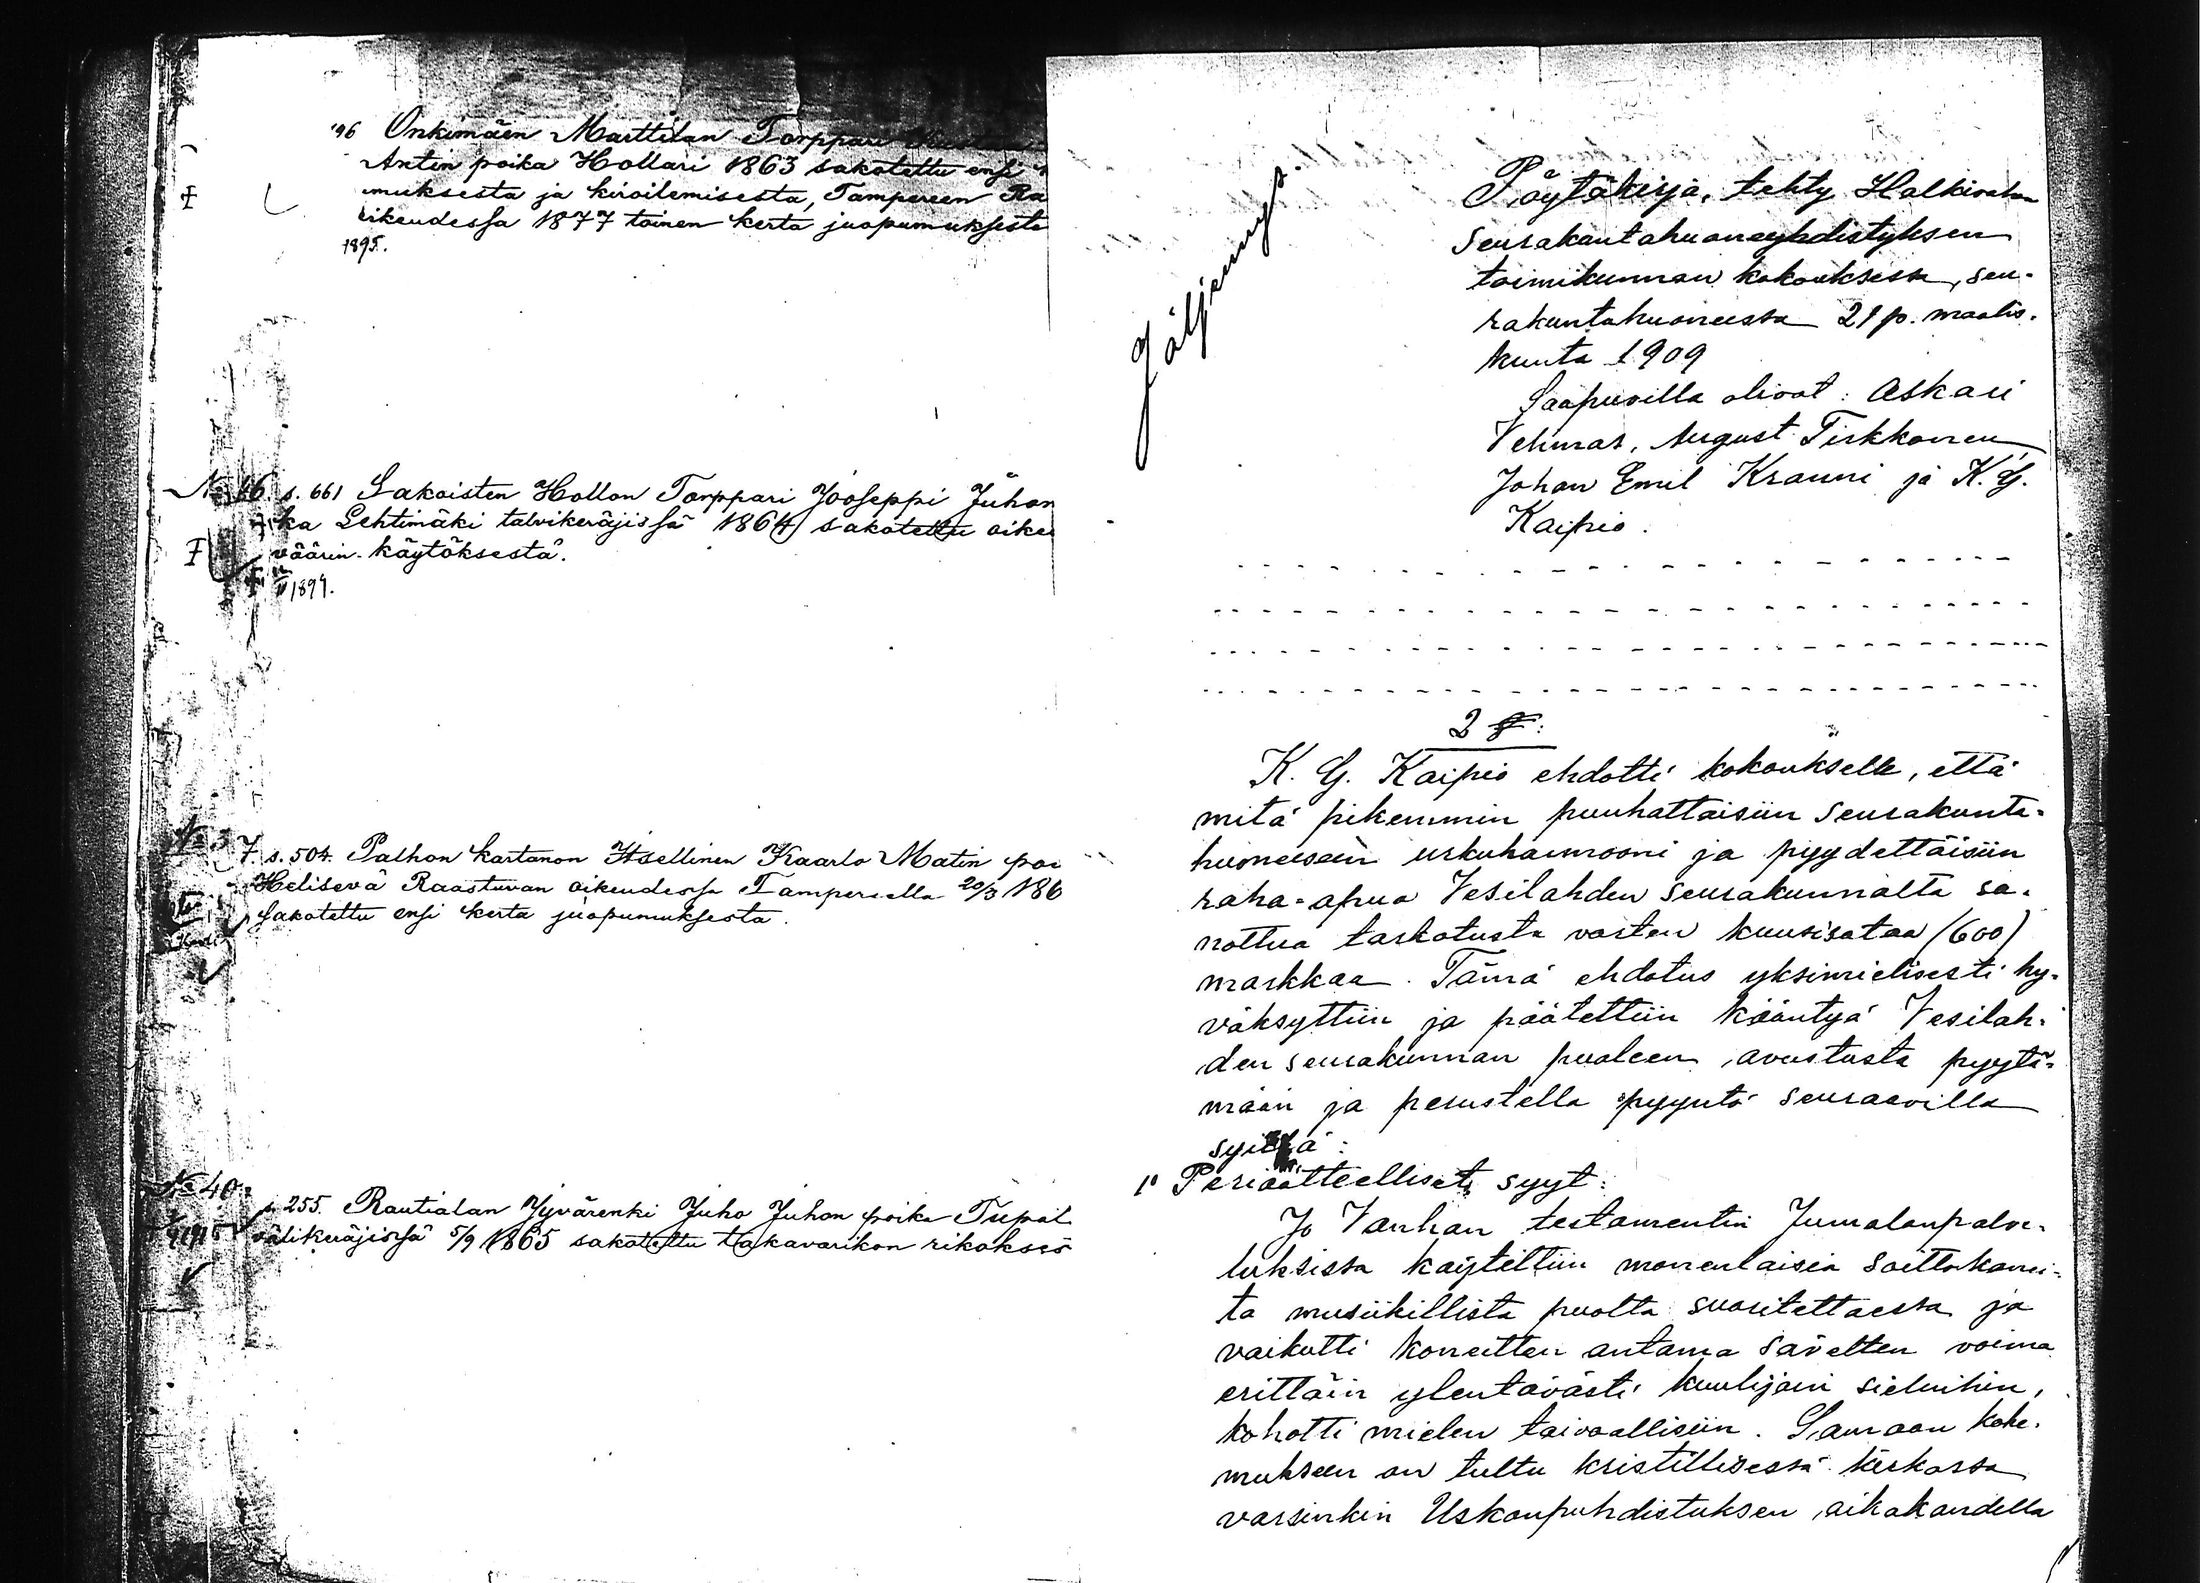 '96 Onkimäen Marttilan Torppari
Antin poika Hollari 1863 sakotettu ensi
muksesta ja kiroilemisesta, Tampereen Ra
oikeudessa 1877 toinen kerta juopumuksesta
1895.
s. 661 Lakoisten Hollon Torppari Jooseppi Juhan
ka Lehtimäki talvikeräjissä 1864 sakotettu oike
väärin käytöksestä.
1899.
7. s. 504. Palhon kartanon Itsellinen Kaarlo Matin poi
Helisevä Raastuvan oikeudessa Tampereella 20/3 186
sakotettu ensi kerta juopumuksesta.
No 40.
s. 255. Rautialan Jyvärenki Juho Juhon poika Tupal
välikeräjissä 5/9 1865 sakotettu takavarikon rikokses
Jäljennys.
Pöytäkirja, tehty Halkivahan
Seurakuntahuoneyhdistyksen
toimikunnan kokouksessa, seu-
rakuntahuoneessa 21 p. maalis-
kuuta 1909
Saapuvilla olivat: Oskari
Vehmas, August Tirkkonen
Johan Emil Krauni ja K. G.
Kaipio.
2 §:
K. G. Kaipio ehdotti kokoukselle, että
mitä pikemmin puuhattaisiin Seurakunta-
huoneeseen urkuharmooni ja pyydettäisiin
raha-apua Vesilahden seurakunnalta sa-
nottua tarkotusta varten kuusisataa (600)
markkaa. Tämä ehdotus yksimielisesti hy-
väksyttiin ja päätettiin kääntyä Vesilah-
den seurakunnan puoleen avustusta pyytä-
mään ja perustella pyyntö seuraavilla
syillä:
1o Periaatteelliset syyt:
Jo Vanhan testamentin Jumalanpalve-
luksissa käytettiin monenlaisia Soittokonei-
ta musiikillista puolta suoritettaessa ja
vaikutti koneitten antama sävelten voima
erittäin ylentävästi kuulijain sieluihin,
kohotti mielen taivaallisiin. Samaan koke-
mukseen on tultu kristillisessä kirkossa
varsinkin Uskonpuhdistuksen aikakaudella